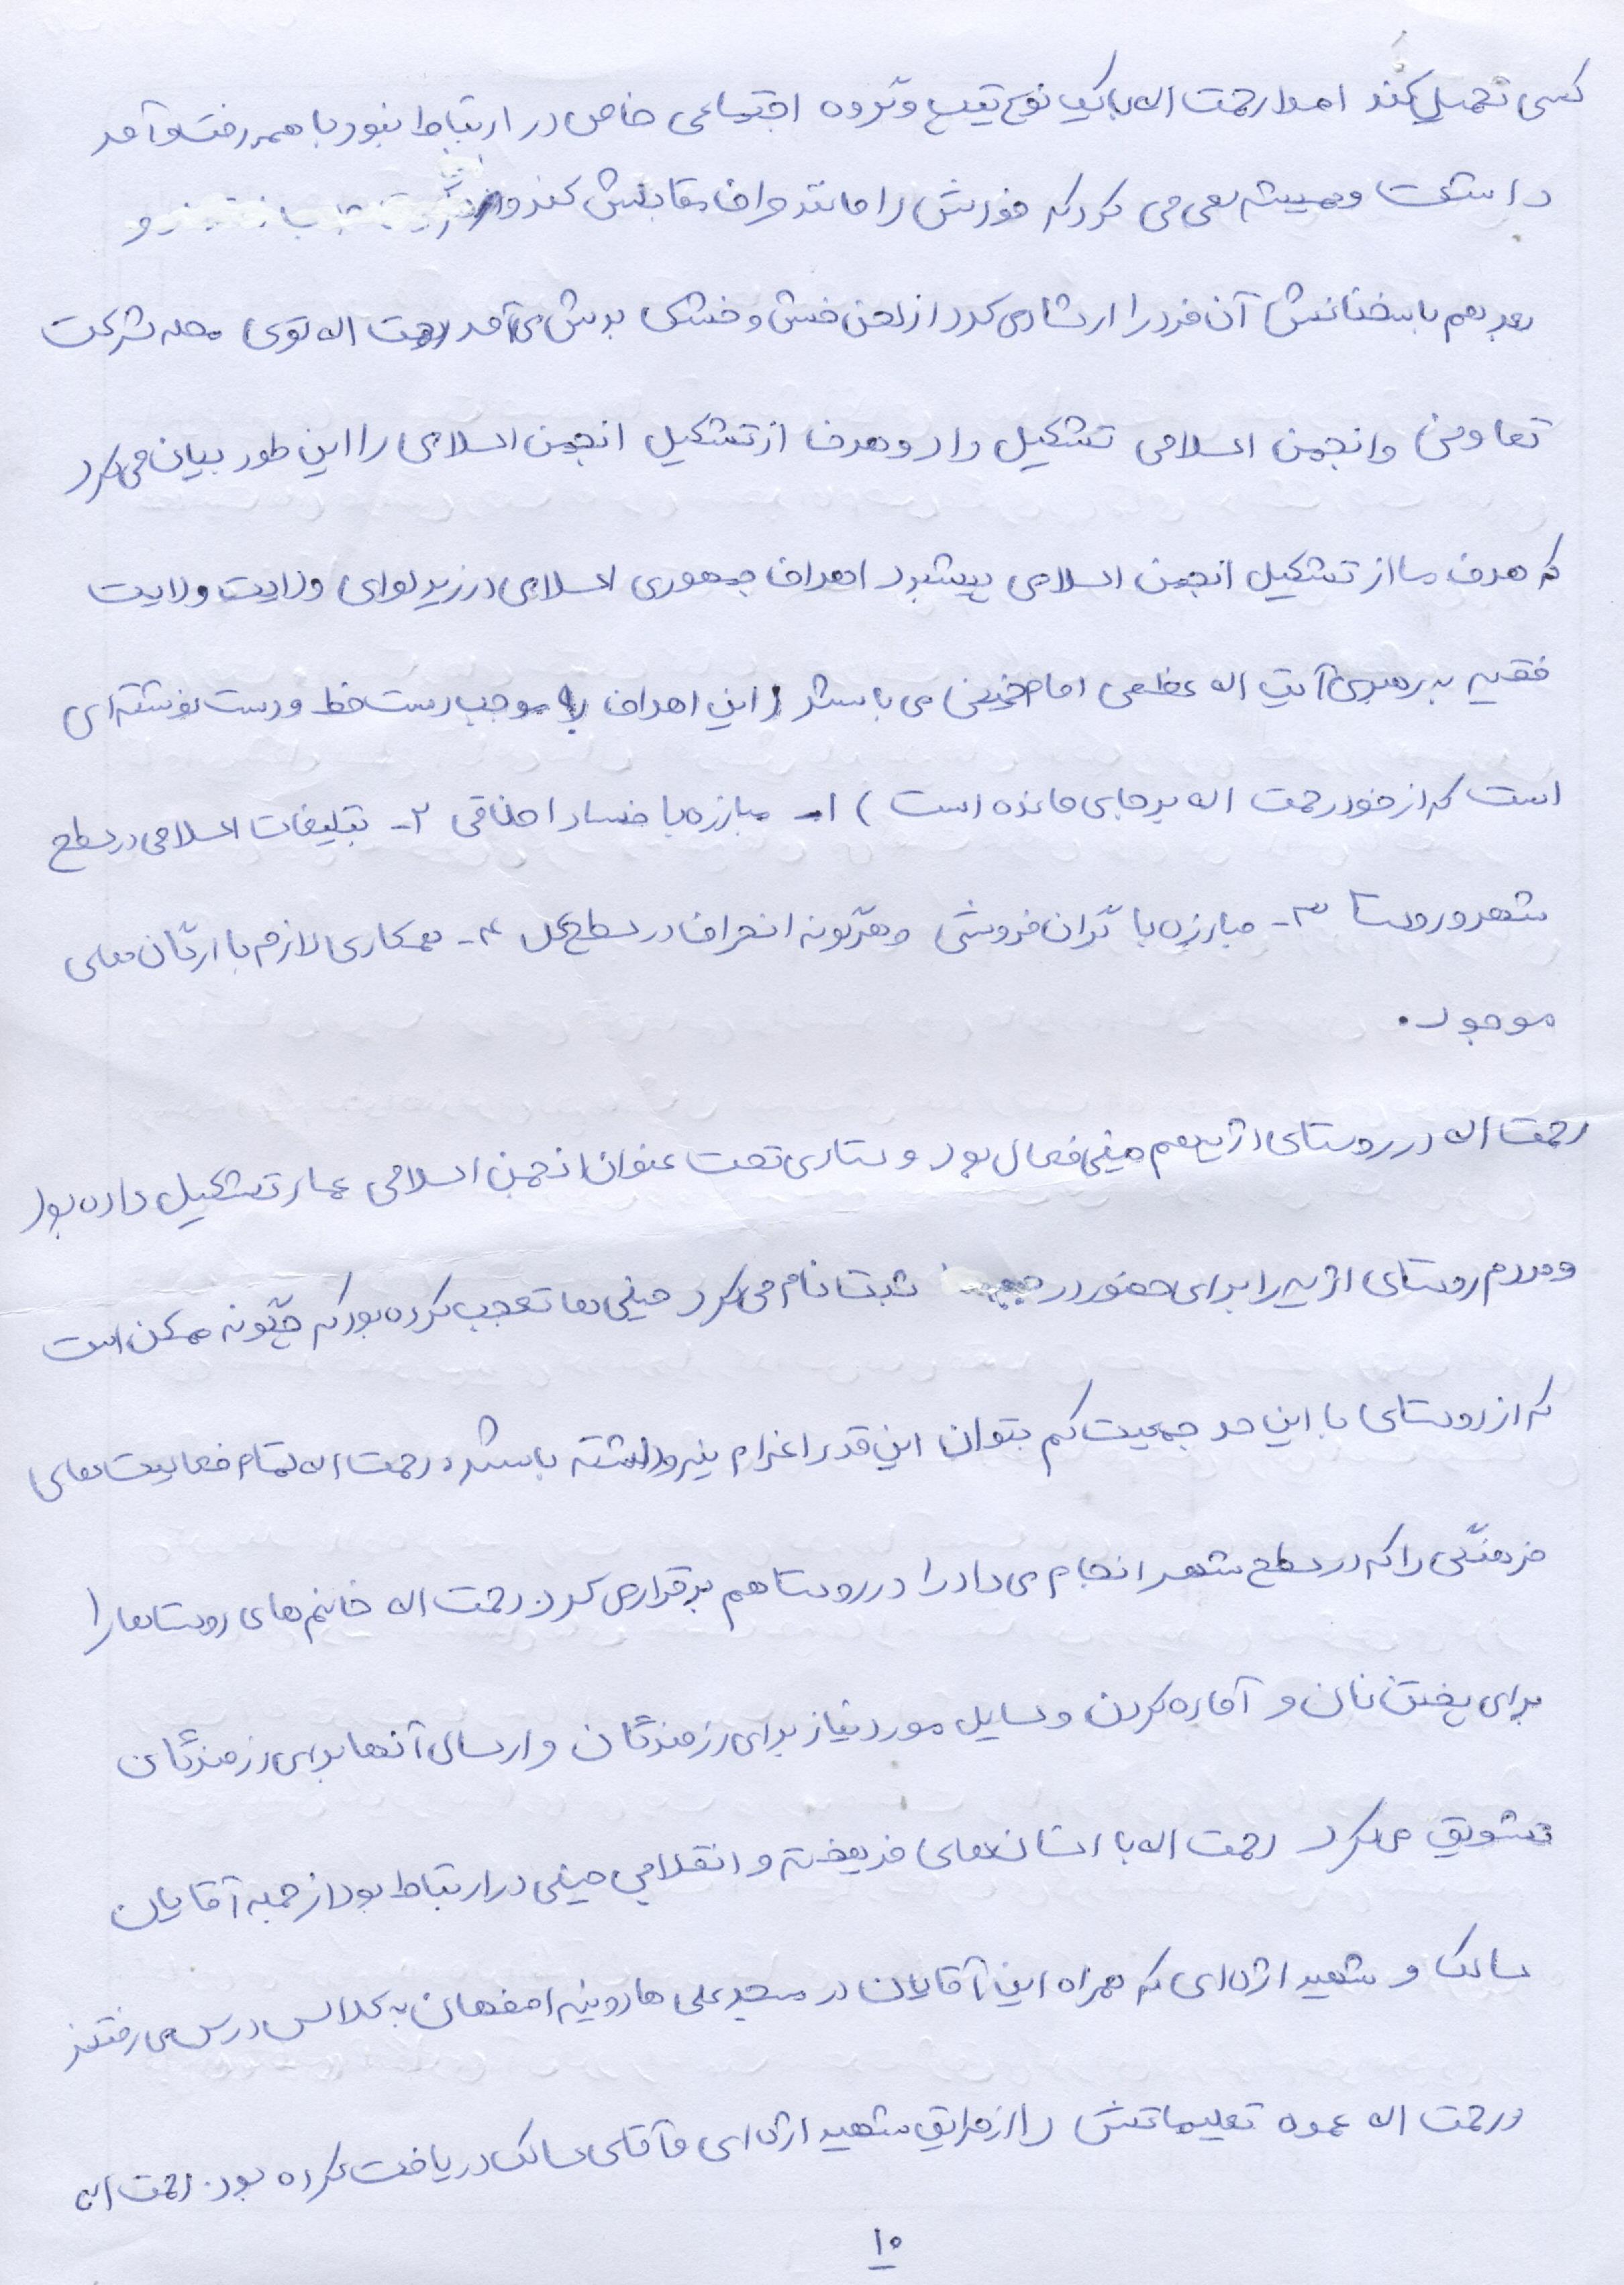 کسی تحمیل کند اصلا رحمت اله با یک نوع تیپ و گروه اجتماعی خاص در ارتباط نبود با همه رفت و آمد
داشت و همیشه سعی می کرد که خودش را مانند طرف مقابلش کند و
بعد هم با سخنانش آن فرد را ارشاد می کرد از لحن خش و خشک بدش می آمد رحمت اله توی محله شرکت
تعاونی و انجمن اسلامی تشکیل داد و هدف از تشکیل انجمن اسلامی را این طور بیان می کرد
که هدف ما از تشکیل انجمن اسلامی پیشبرد اهداف جمهوری اسلامی در زیر لوای ولایت ولایت
فقیه به رهبری آیت اله عظمی امام خمینی می باشد (این اهداف به موجب دست خط و دست نوشته ای
است که از خود رحمت اله بر جای مانده است) ۱- مبارزه با فساد اخلاقی ۲- تبلیغات اسلامی در سطح
شهر و روستا ۳- مبارزه با گران فروشی و هرگونه انحراف در سطح محل ۴- همکاری لازم با ارگان های
موجود.
رحمت اله در روستای اژیه هم خیلی فعال بود و ستادی تحت عنوان انجمن اسلامی عمار تشکیل داده بود
و مردم روستای اژیه را برای حضور در جبهه ثبت نام می کرد خیلی ها تعجب کرده بود که چگونه ممکن است
که از روستای با این حد جمعیت کم بتوان این قدر اعزام نیرو داشته باشد. رحمت اله تمام فعالیت های
فرهنگی را که در سطح شهر انجام می داد را در روستا هم برقرار می کرد. رحمت اله خانم های روستاها را
برای پختن نان و آماده کردن وسایل مورد نیاز برای رزمندگان و ارسال آنها برای رزمندگان
تشویق می کرد رحمت اله با انسانهای فریخته و انقلابی خیلی در ارتباط بود از جمله آقایان
سالک و شهید اژه ای که همراه این آقایان در مسجد علی هارونیه اصفهان به کلاس درس می رفتند
و رحمت اله عمده تعلیماتش را از طریق شهید اژه ای و آقای سالک دریافت کرده بود. رحمت اله
۱۰